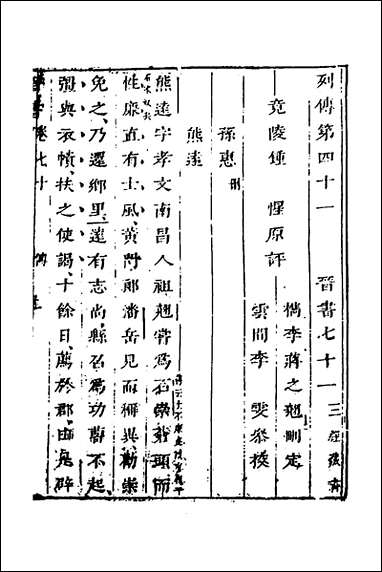 列傳第四十一 晉書七十一 三徑藏書
竟陵鍾 惺原評
檇李蔣之翹刪定
雲間李 雯參校
孫惠 刪
熊遠
熊遠字孝文南昌人祖翹嘗爲石崇蒼頭而
性廉直有士風黃門郎潘岳見而稱異勸崇
免之乃還鄉里遠有志尚縣召爲功曹不起
彊與衣幘扶之使謁十餘日薦於郡由是辟
晉書 卷七十 傳